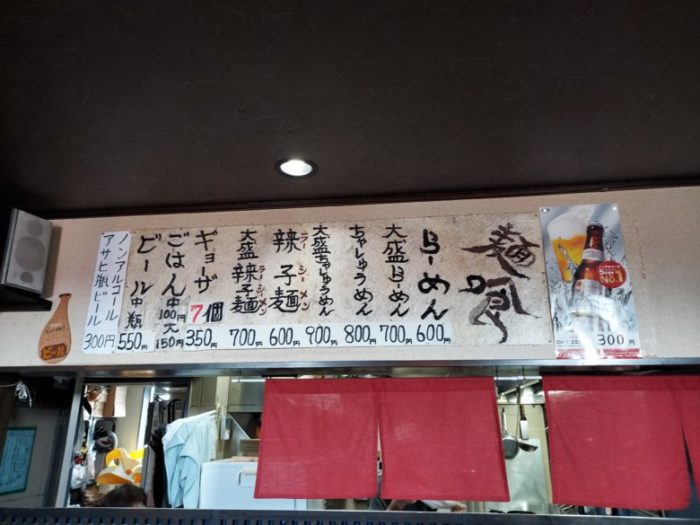 麺喰
らーめん 600円
大盛らーめん 700円
ちゃしゅうめん 800円
大盛ちゃしゅうめん 900円
辣子麺 ラーシーメン 600円
大盛辣子麺 ラーシーメン 700円
ギョーザ 7個 350円
ごはん 中100円 大150円
ビール 中瓶 550円
ノンアルコール
アサヒ瓶ビール 300円
No.1
DRY ZERO
300円